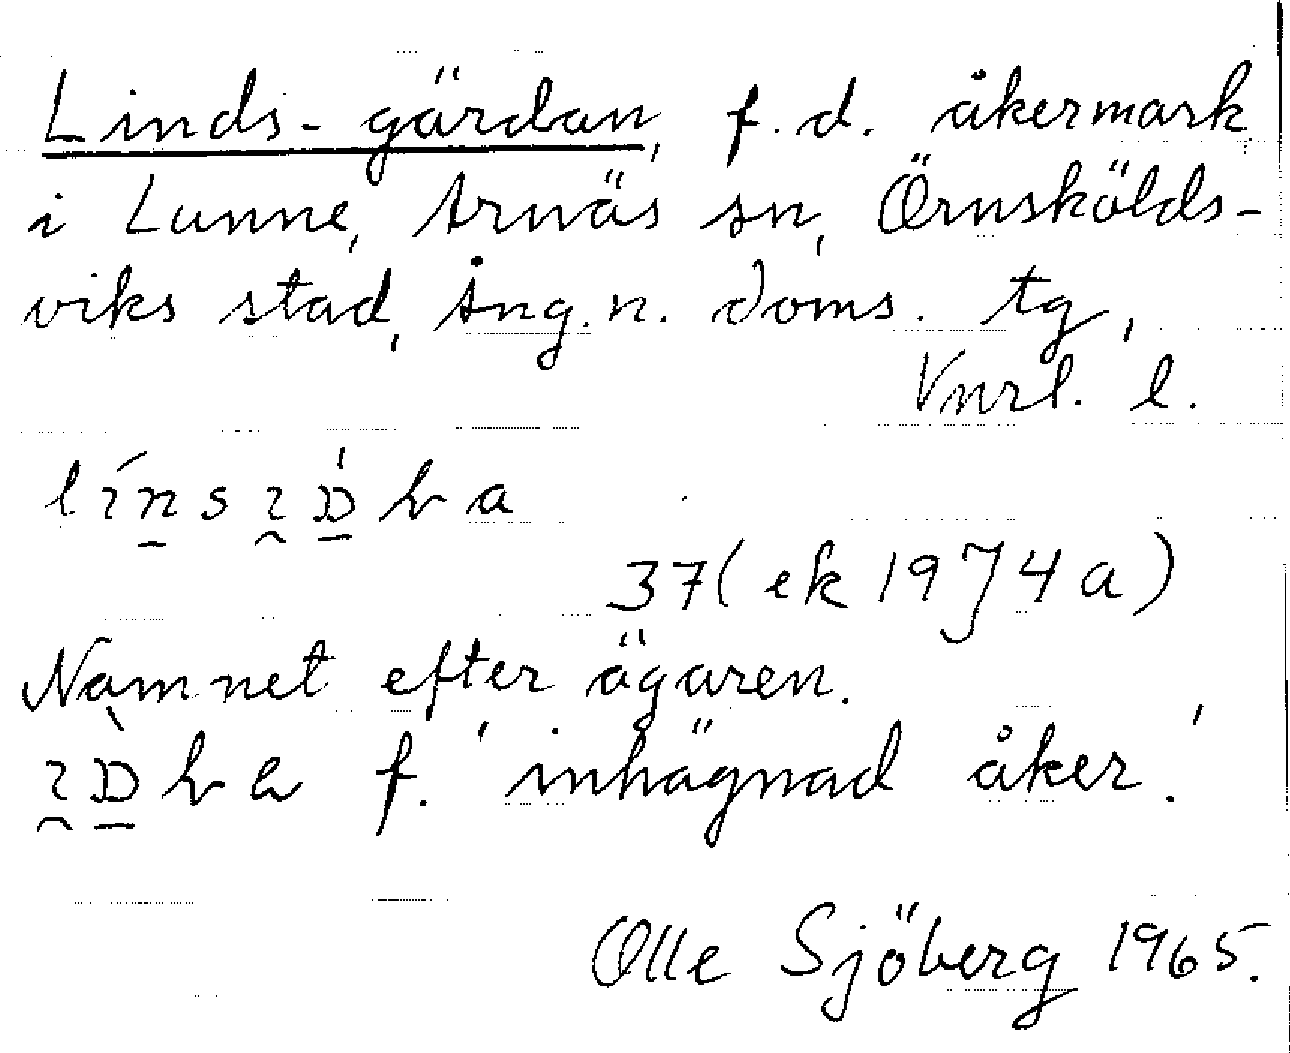 Linds-gärdan, f.d. åkermark
i Lunne, Arnäs sn, Örnskölds-
viks stad, Ång. n. doms. tg,
Vnrl. l.
37 (ek 1974 a)
Namnet efter ägaren.
f. 'inhägnad åker.'
Olle Sjöberg 1965.